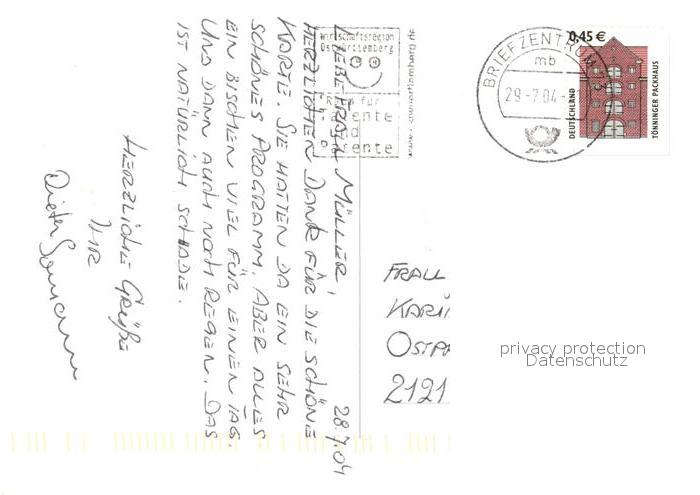 28.7.04
LIEBE FRAU MÜLLER,
HERZLICHEN DANK FÜR DIE SCHÖNE
KARTE. SIE HATTEN DA EIN SEHR
SCHÖNES PROGRAMM. ABER ALLES
EIN BISCHEN VIEL FÜR EINEN TAG.
UND DANN AUCH NOCH REGEN. DAS
IST NATÜRLICH SCHADE.
HERZLICHE GRÜßE
IHR
Dieter
Wirtschaftsregion
Ostwürttemberg
für
Talente
und
Patente
BRIEFZENTRUM
mb
29-7.04
0,45 €
DEUTSCHLAND
TÖNNINGER PACKHAUS
FRAU
KARI
OSTPR
2121
privacy protection
Datenschutz